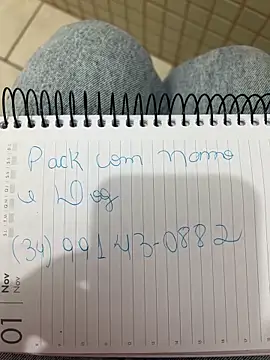 Pack com mamo
e Dog
(34) 99143-0882
01
Nov
Nov